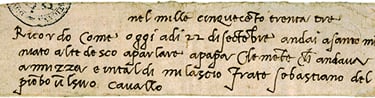 nel mille cinquecento trenta tre
Ricordo come oggi a dì 22 di sectembre andai a santo mi
niato al tedesco a parlare a papa Clemente che andava
a nizza e in tal dì mi lasciò frate sebastiano del
piombo un suo cavallo